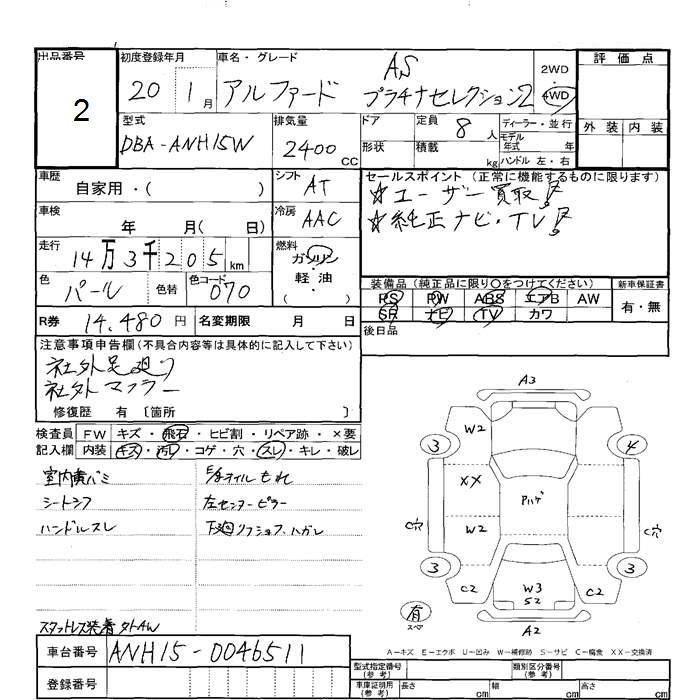 出品番号 2
初度登録年月 20 1月
車名・グレード アルファード AS プラチナセレクション2
2WD 4WD
評価点
外装 内装
型式 DBA-ANH15W
排気量 2400 CC
ドア 形状
定員 8人
積載 kg
ディーラー・並行
モデル年式 年
ハンドル 左・右
車歴 自家用・( )
シフト AT
セールスポイント(正常に機能するものに限ります)
☆ユーザー買取!
☆純正ナビ・TV!
車検 年 月( 日)
冷房 AAC
走行 14万3千205km
燃料 ガソリン・軽油・( )
色 パール 色替 色コード 070
装備品(純正品に限り○をつけてください)
新車保証書
PS PW ABS エアB AW
SR ナビ TV カワ
有・無
R券 14,480円 名変期限 月 日
後日品
注意事項申告欄(不具合内容等は具体的に記入して下さい)
社外足廻り
社外マフラー
修復歴 有 〔箇所 〕
検査員記入欄
FW キズ・飛石・ヒビ割・リペア跡・×要
内装 キズ・汚レ・コゲ・穴・スレ・キレ・破レ
シートシワ
ハンドルスレ
オイルもれ
左センターピラー
スタットレス装着
A3
W2
3
4
XX
Pハゲ
C穴
W2
C穴
3
3
C2
W3
S2
C2
有
A2
A-キズ E-エクボ U-凹み W-補修跡 S-サビ C-腐食 XX-交換済
車台番号 ANH15-0046511
登録番号
型式指定番号(参考)
類別区分番号(参考)
車庫証明用(参考) 長さ cm 幅 cm 高さ cm